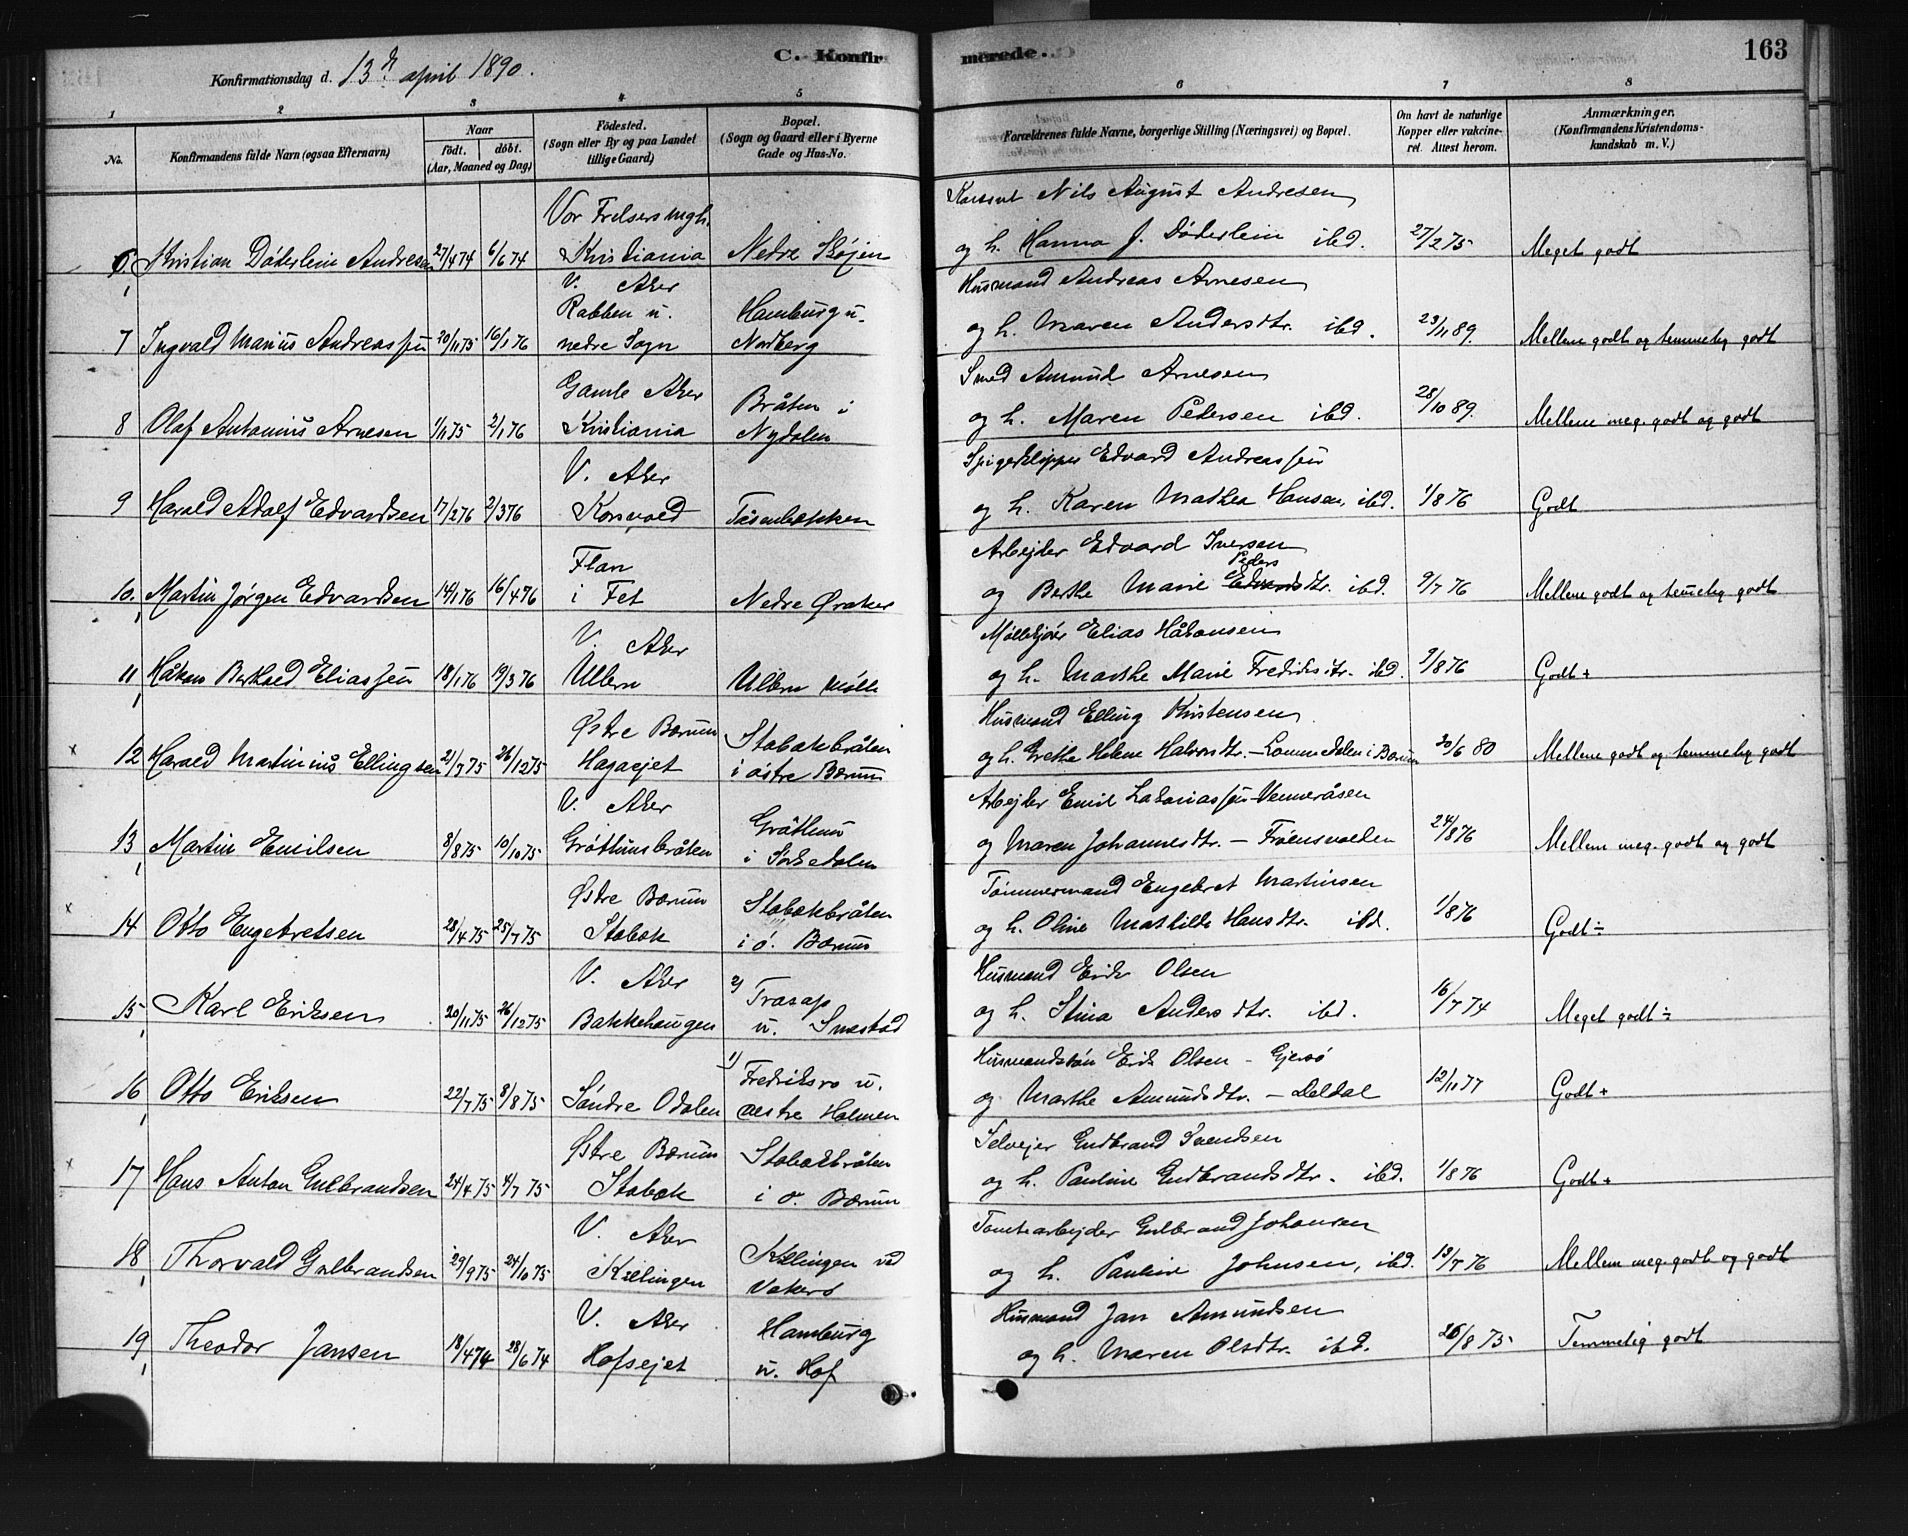 Konfirmationsdag d. 13de april 1890.
C. Konfirmerede.
163
1 2 3 4 5 6 7 8
No.
Konfirmandens fulde Navn (ogsaa Efternavn)
Naar
födt. döbt.
(Aar, Maaned og Dag)
Födested.
(Sogn eller By og paa Landet
tillige Gaard)
Bopæl.
(Sogn og Gaard eller i Byerne
Gade og Hus-No.
Forældrenes fulde Navne, borgerlige Stilling (Næringsvei) og Bopæl.
Om havt de naturlige
Kopper eller vakcine-
ret. Attest herom.
Anmærkninger.
(Konfirmandens Kristendoms-
kundskab m. V.)
Vor Frelsers mgh. Nils August Andresen
6. Kristian Døderlein Andresen 27/4 74 6/6 74 Kristiania Nedre Skøjen og h. Hanna J. Døderlein ibd. 27/2 75 Meget godt
V. Aker Husmand Andreas Arnesen
Rabben u. Hamburg u.
7 Ingvald Marius Andreassen 20/11 75 16/1 76 nedre Sogn Nordberg og h. Maren Andersdtr. ibd. 23/11 89. Mellem godt og temmelig godt
Gamle Aker Bråten i Smed Amund Arnesen
8 Olaf Antonius Arnesen 1/11 75 2/1 76 Kristiania Nydalen og h. Maren Pedersen ibd. 28/10 89. Mellem meg. godt og godt
V. Aker Spigerklipper Edvard Andreassen
9 Harald Adolf Edvardsen 17/2 76 2/3 76 Korsvold Tåsenbakken og h. Karen Mathea Hansen, ibd. 1/8 76 Godt
Flan Arbejder Edvard Iversen
Peders
10. Martin Jørgen Edvardsen 14/1 76 16/4 76 i Fet Nedre Øraker og Berthe Marie Edvardsdtr. ibd. 9/7 76 Mellem godt og temelig godt
V. Aker Møllekjører Elias Håkonsen
11 Håkon Berthod Eliassen 18/1 76 19/3 76 Ullern Ullern Mølle og h. Marthe Marie Fredriksdtr. ibd. 9/8 76 Godt+
Østre Bærum Stabækbråten Husmand Elling Kristensen
x 12 Harald Martinius Ellingsen 21/7 75 26/12 75 Hagaejet i østre Bærum og h. Grethe Helene Halvorsdtr. – Lommedalen i Bærum 20/6 80 Mellem godt og temmelig godt
V. Aker Gråthus Arbejder Emil Zakariassen Venneråsen
13 Martin Emilsen 8/8 75 10/10 75 Gråthusbråten i Sørkedalen og Maren Johannesdtr. – Frøensvolden 24/8 76 Mellem meg. godt og godt
Østre Bærum Stabækbråten Tømmermand Engebret Martinsen
x 14 Otto Engebretsen 28/4 75 25/7 75 Stabæk i ø. Bærum og h. Oline Mathilde Hansdtr. ibd. 1/8 76 Godt÷
V. Aker 2) Trasop Husmand Erik Olsen
15 Karl Eriksen 20/11 75 26/12 75 Bakkehaugen u. Smestad og h. Stina Andersdtr. ibd. 16/7 74 Meget godt÷
1) Fredriksro u. Husmandssøn Erik Olsen – Gjersø
16 Otto Eriksen 22/7 75 8/8 75 Søndre Odalen vestre Holmen og Marthe Amundsdtr. – Deldal 12/10 77 Godt+
Østre Bærum Stabækbråten Selvejer Gudbrand Svendsen
x 17 Hans Anton Gulbrandsen 24/4 75 4/7 75 Stabæk i ø. Bærum og h. Pauline Gudbrandsdtr. ibd. 1/8 76 Godt+
V. Aker Killingen ved Tomtearbejder Gulbrand Johansen
18 Thorvald Gulbrandsen 29/9 75 24/10 75 Killingen Vækerø og h. Pauline Johnsen, ibd. 13/7 76 Mellem meg. godt og godt
V. Aker Hamburg Husmand Jan Amundsen
19 Theodor Jansen 18/4 74 28/6 74 Hofsejet u. Hof og h. Maren Olsdtr. ibd. 26/8 75 Temmelig godt